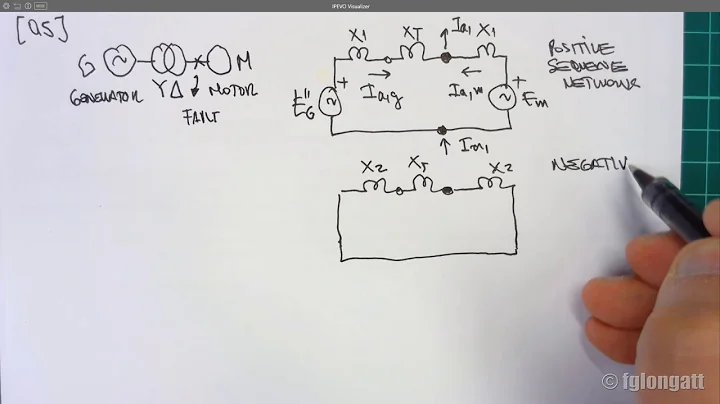 IPEVO Visualizer
[Q5]
G
M
GENERATOR
Y Δ
MOTOR
FAULT
X1
XT
Ia,1
X1
+
+
Ia,g
Ia,m
EG"
Em
Ia,1
POSITIVE
SEQUENCE
NETWORK
X2
XT
X2
NEGATIV
© fglongatt